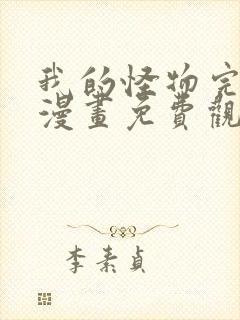 我的怪物完
漫畫免費觀
李素貞